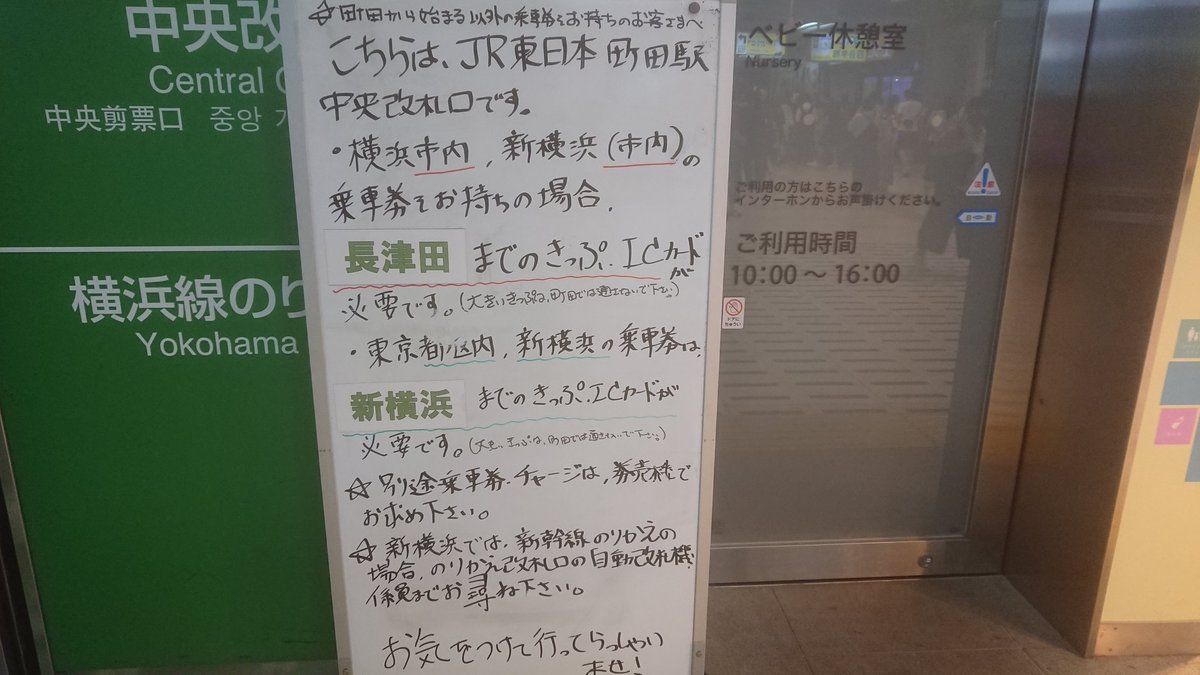 中央改
Central
中央剪票口 중앙
横浜線のり
Yokohama
☆町田から始まる以外の乗車券をお持ちのお客さまへ
こちらは、JR東日本 町田駅
中央改札口です。
・横浜市内, 新横浜(市内)の
乗車券をお持ちの場合.
長津田 までのきっぷ.ICカードが
必要です。(大きいきっぷは、町田では通さないで下さい)
・東京都区内, 新横浜の乗車券は、
新横浜 までのきっぷ.ICカードが
必要です。(大きいきっぷは、町田では通さないで下さい)
☆別途乗車券.チャージは,券売機で
お求め下さい。
☆新横浜では、新幹線のりかえの
場合,のりかえ改札口の自動改札機.
係員までお尋ね下さい。
お気をつけて行ってらっしゃい
ませ!
ベビー休憩室
Nursery
ご利用の方はこちらの
インターホンからお声掛けください。
ご利用時間
10:00 ～ 16:00
注意
自動
ドアに
ちゅうい